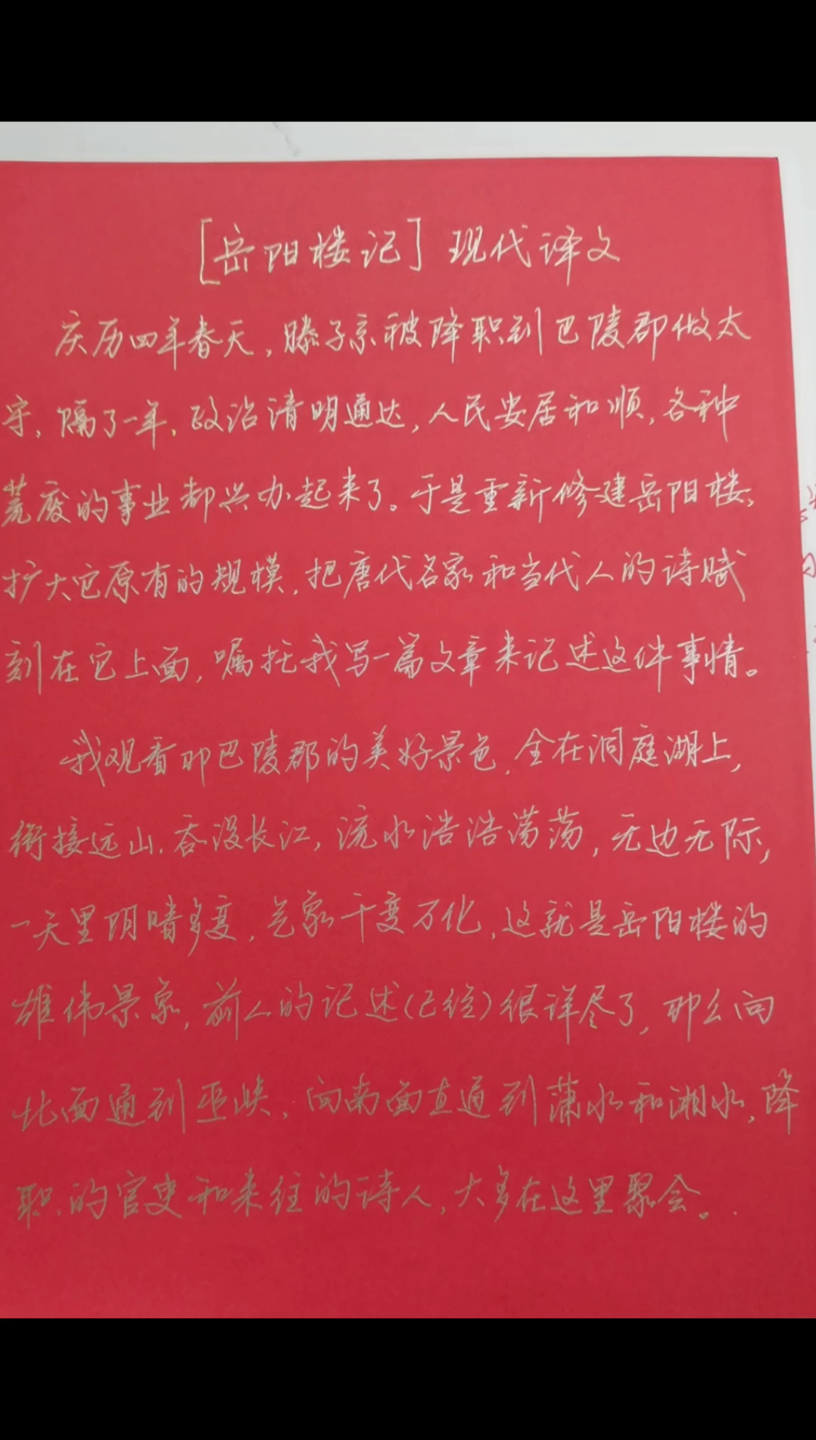 [岳阳楼记]现代译文
庆历四年春天,滕子京被降职到巴陵郡做太
守,隔了一年,政治清明通达,人民安居和顺,各种
荒废的事业都兴办起来了。于是重新修建岳阳楼,
扩大它原有的规模,把唐代名家和当代人的诗赋
刻在它上面,嘱托我写一篇文章来记述这件事情。
我观看那巴陵郡的美好景色,全在洞庭湖上,
衔接远山.吞没长江,流水浩浩荡荡,无边无际,
一天里阴晴多变,气象千变万化,这就是岳阳楼的
雄伟景象,前人的记述(已经)很详尽了,那么向
北面通到巫峡,向南面直通到潇水和湘水,降
职.的官吏和来往的诗人,大多在这里聚会。